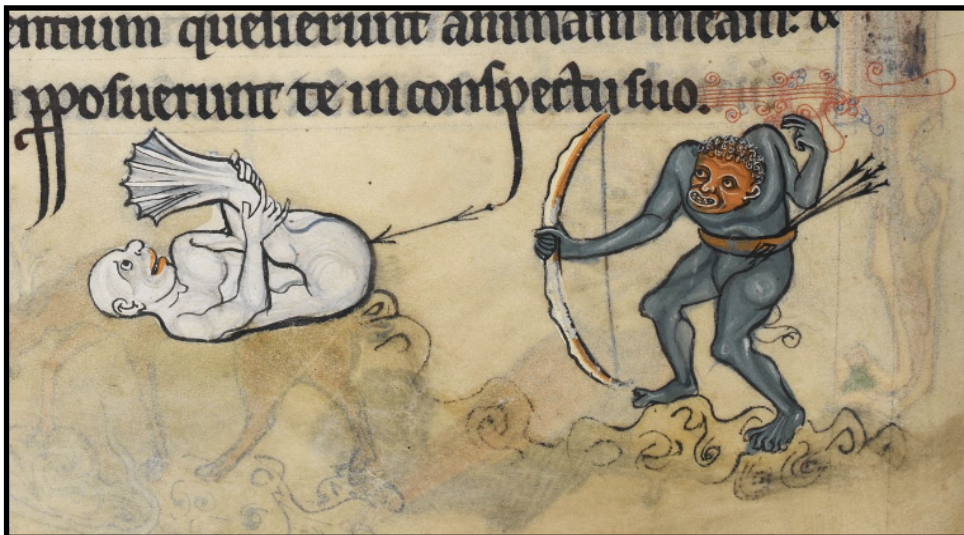 entium quesierunt animam meam: &
ꝓposuerunt te in conspectu suo.